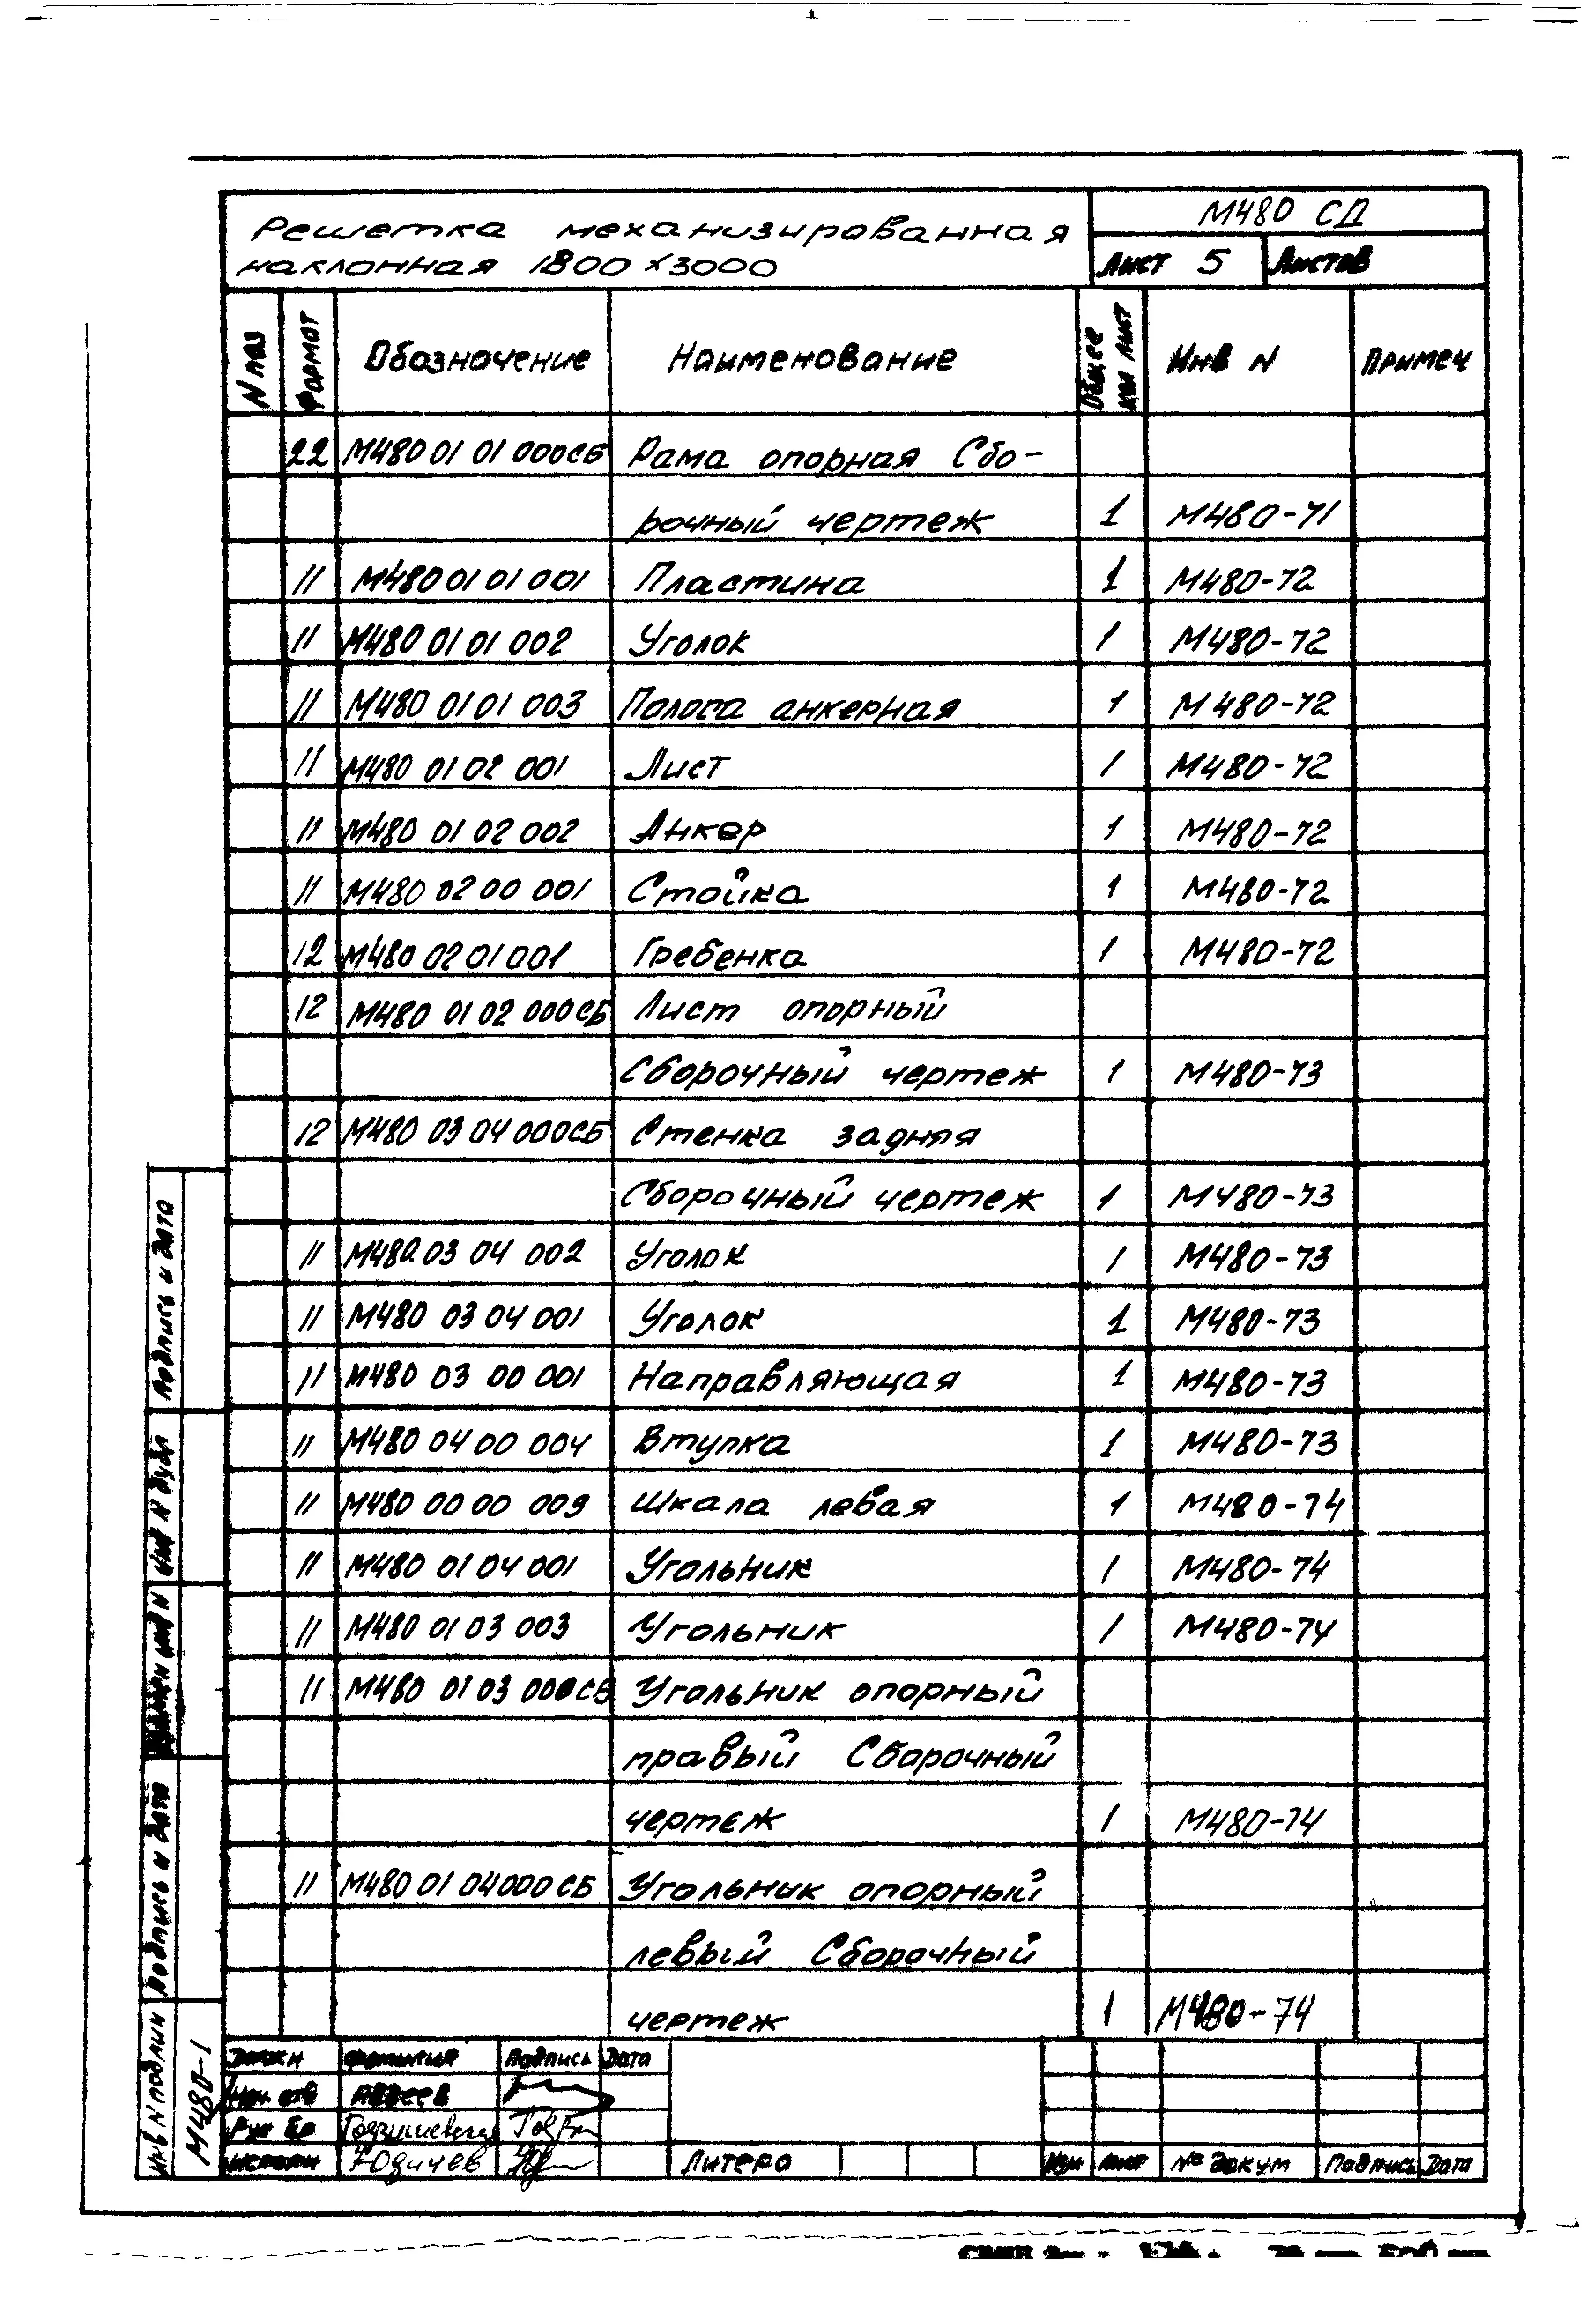 Решетка механизированная
наклонная 1800×3000
М480 СД
Лист 5 Листов
N паз Формат Обозначение Наименование Общее кол лист Инв N Примеч
22 М480 01 01 000СБ Рама опорная Сбо-
рочный чертеж 1 М480-71
11 М480 01 01 001 Пластина 1 М480-72
11 М480 01 01 002 Уголок 1 М480-72
11 М480 01 01 003 Полоса анкерная 1 М480-72
11 М480 01 02 001 Лист 1 М480-72
11 М480 01 02 002 Анкер 1 М480-72
11 М480 02 00 001 Стойка 1 М480-72
12 М480 02 01 001 Гребенка 1 М480-72
12 М480 01 02 000СБ Лист опорный
Сборочный чертеж 1 М480-73
12 М480 03 04 000СБ Стенка задняя
Сборочный чертеж 1 М480-73
11 М480.03 04 002 Уголок 1 М480-73
11 М480 03 04 001 Уголок 1 М480-73
11 М480 03 00 001 Направляющая 1 М480-73
11 М480 04 00 004 Втулка 1 М480-73
11 М480 00 00 009 Шкала левая 1 М480-74
11 М480 01 04 001 Угольник 1 М480-74
11 М480 01 03 003 Угольник 1 М480-74
11 М480 01 03 000СБ Угольник опорный
правый Сборочный
чертеж 1 М480-74
11 М480 01 04000СБ Угольник опорный
левый Сборочный
чертеж 1 М480-74
Подпись и дата
Инв N дубл
инв N
Подпись и дата
Инв N подлин
М480-1
Должн Фамилия Подпись Дата
Нач. отд Авдеев
Рук бр
Исполн Юдичев
Литера
Изм Лист № докум Подпись Дата